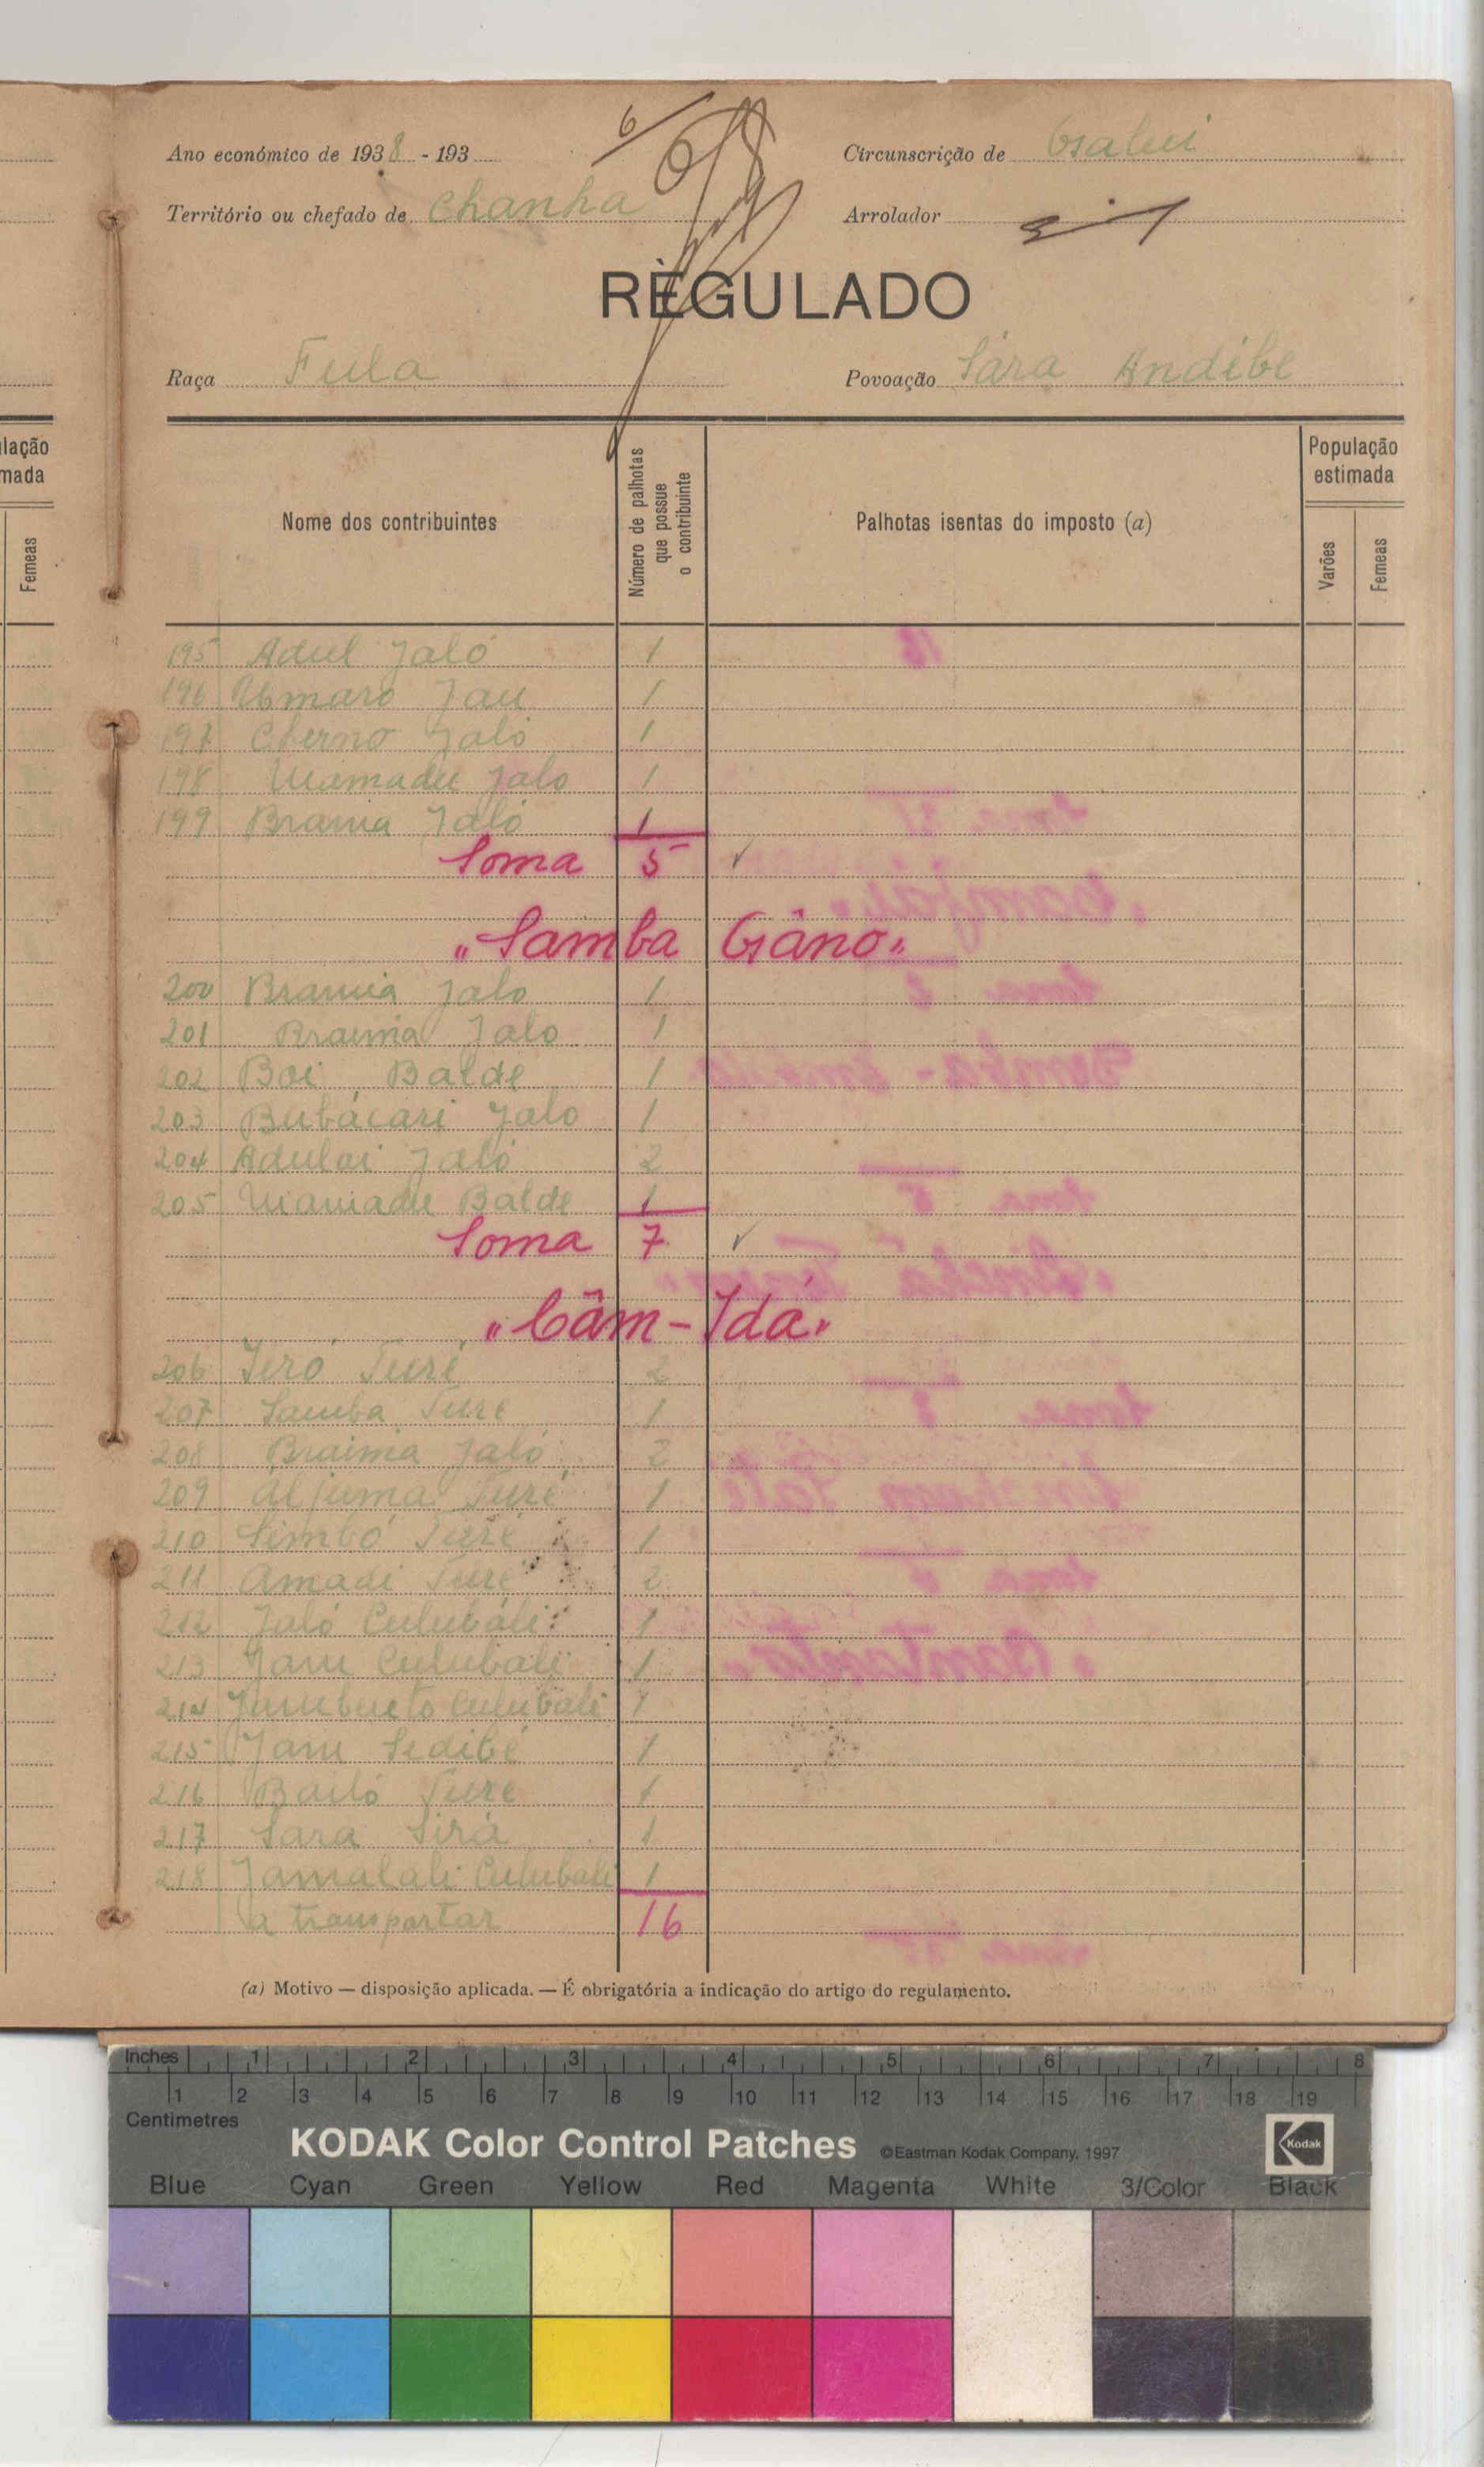 lação
mada
Femeas
6
Ano económico de 1938 - 193
Circunscrição de Gabui
Território ou chefado de Chanha
Arrolador
REGULADO
Raça Fula
Povoação Sára Andibe
Nome dos contribuintes
Número de palhotas que possue o contribuinte
Palhotas isentas do imposto (a)
População estimada
Varões
Femeas
195 Adul Jaló 1
196 Umaro Jau 1
197 Cherno Jaló 1
198 Mamadu Jalo 1
199 Braima Jaló 1
Soma 5 ✓
"Samba Gâno"
200 Braima Jalo 1
201 Braima Jalo 1
202 Boi Balde 1
203 Bubácari Jalo 1
204 Adulai Jaló 2
205 Mamadu Balde 1
Soma 7 ✓
"Câm-Idá"
206 Jeró Turé 2
207 Samba Ture 1
208 Braima Jaló 2
209 Aljuma Turé 1
210 Simbó Turé 1
211 Amadi Turé 2
212 Jaló Culubali 1
213 Jam Culubali 1
214 Culubali 1
215 Jam Sedibé 1
216 Bailó Ture 1
217 Sara Sirá 1
218 Jamalali Culubali 1
a transportar 16
(a) Motivo — disposição aplicada. — É obrigatória a indicação do artigo do regulamento.
Inches 1 2 3 4 5 6 7 8
1 2 3 4 5 6 7 8 9 10 11 12 13 14 15 16 17 18 19
Centimetres
KODAK Color Control Patches ©Eastman Kodak Company, 1997 Kodak
Blue Cyan Green Yellow Red Magenta White 3/Color Black